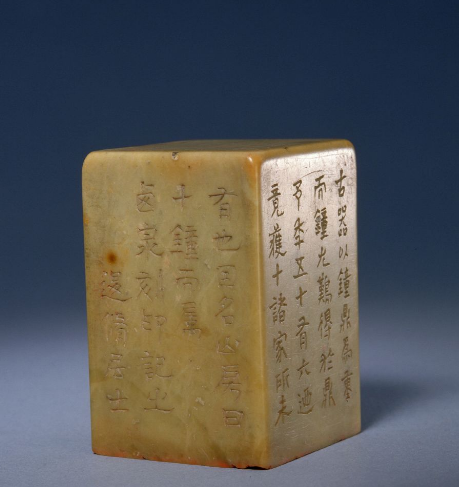 古器以鐘鼎爲
而鐘尤難得於鼎
予秊五十有六迺
竟獲十諸家所未
有也因名山房曰
十鐘而屬
卥泉刻印記之
退脩居士